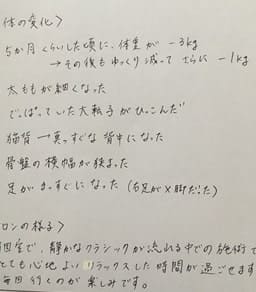 体の変化>
5か月くらいした頃に、体重が -3kg
→その後もゆっくり減って さらに -1kg
太ももが細くなった
でっぱっていた大転子がひっこんだ
猫背→真っすぐな背中になった
骨盤の横幅が狭まった
足がまっすぐになった (右足がX脚だった)
ロンの様子>
個室で、静かなクラシックが流れる中での施術で
とても心地よいリラックスした時間が過ごせます
毎回行くのが楽しみです。